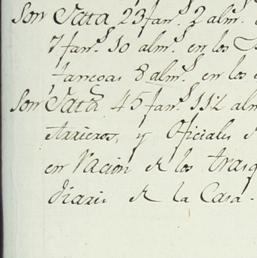 Son Data 23 fan.s 2 alm.s
7 fan.s 10 alm.s en los
tareas 8 alm.s en los
Son Data 45 fan.s 11 2 alm
Arrieros, y Oficiales
en Racion de los tras
diario de la Casa.